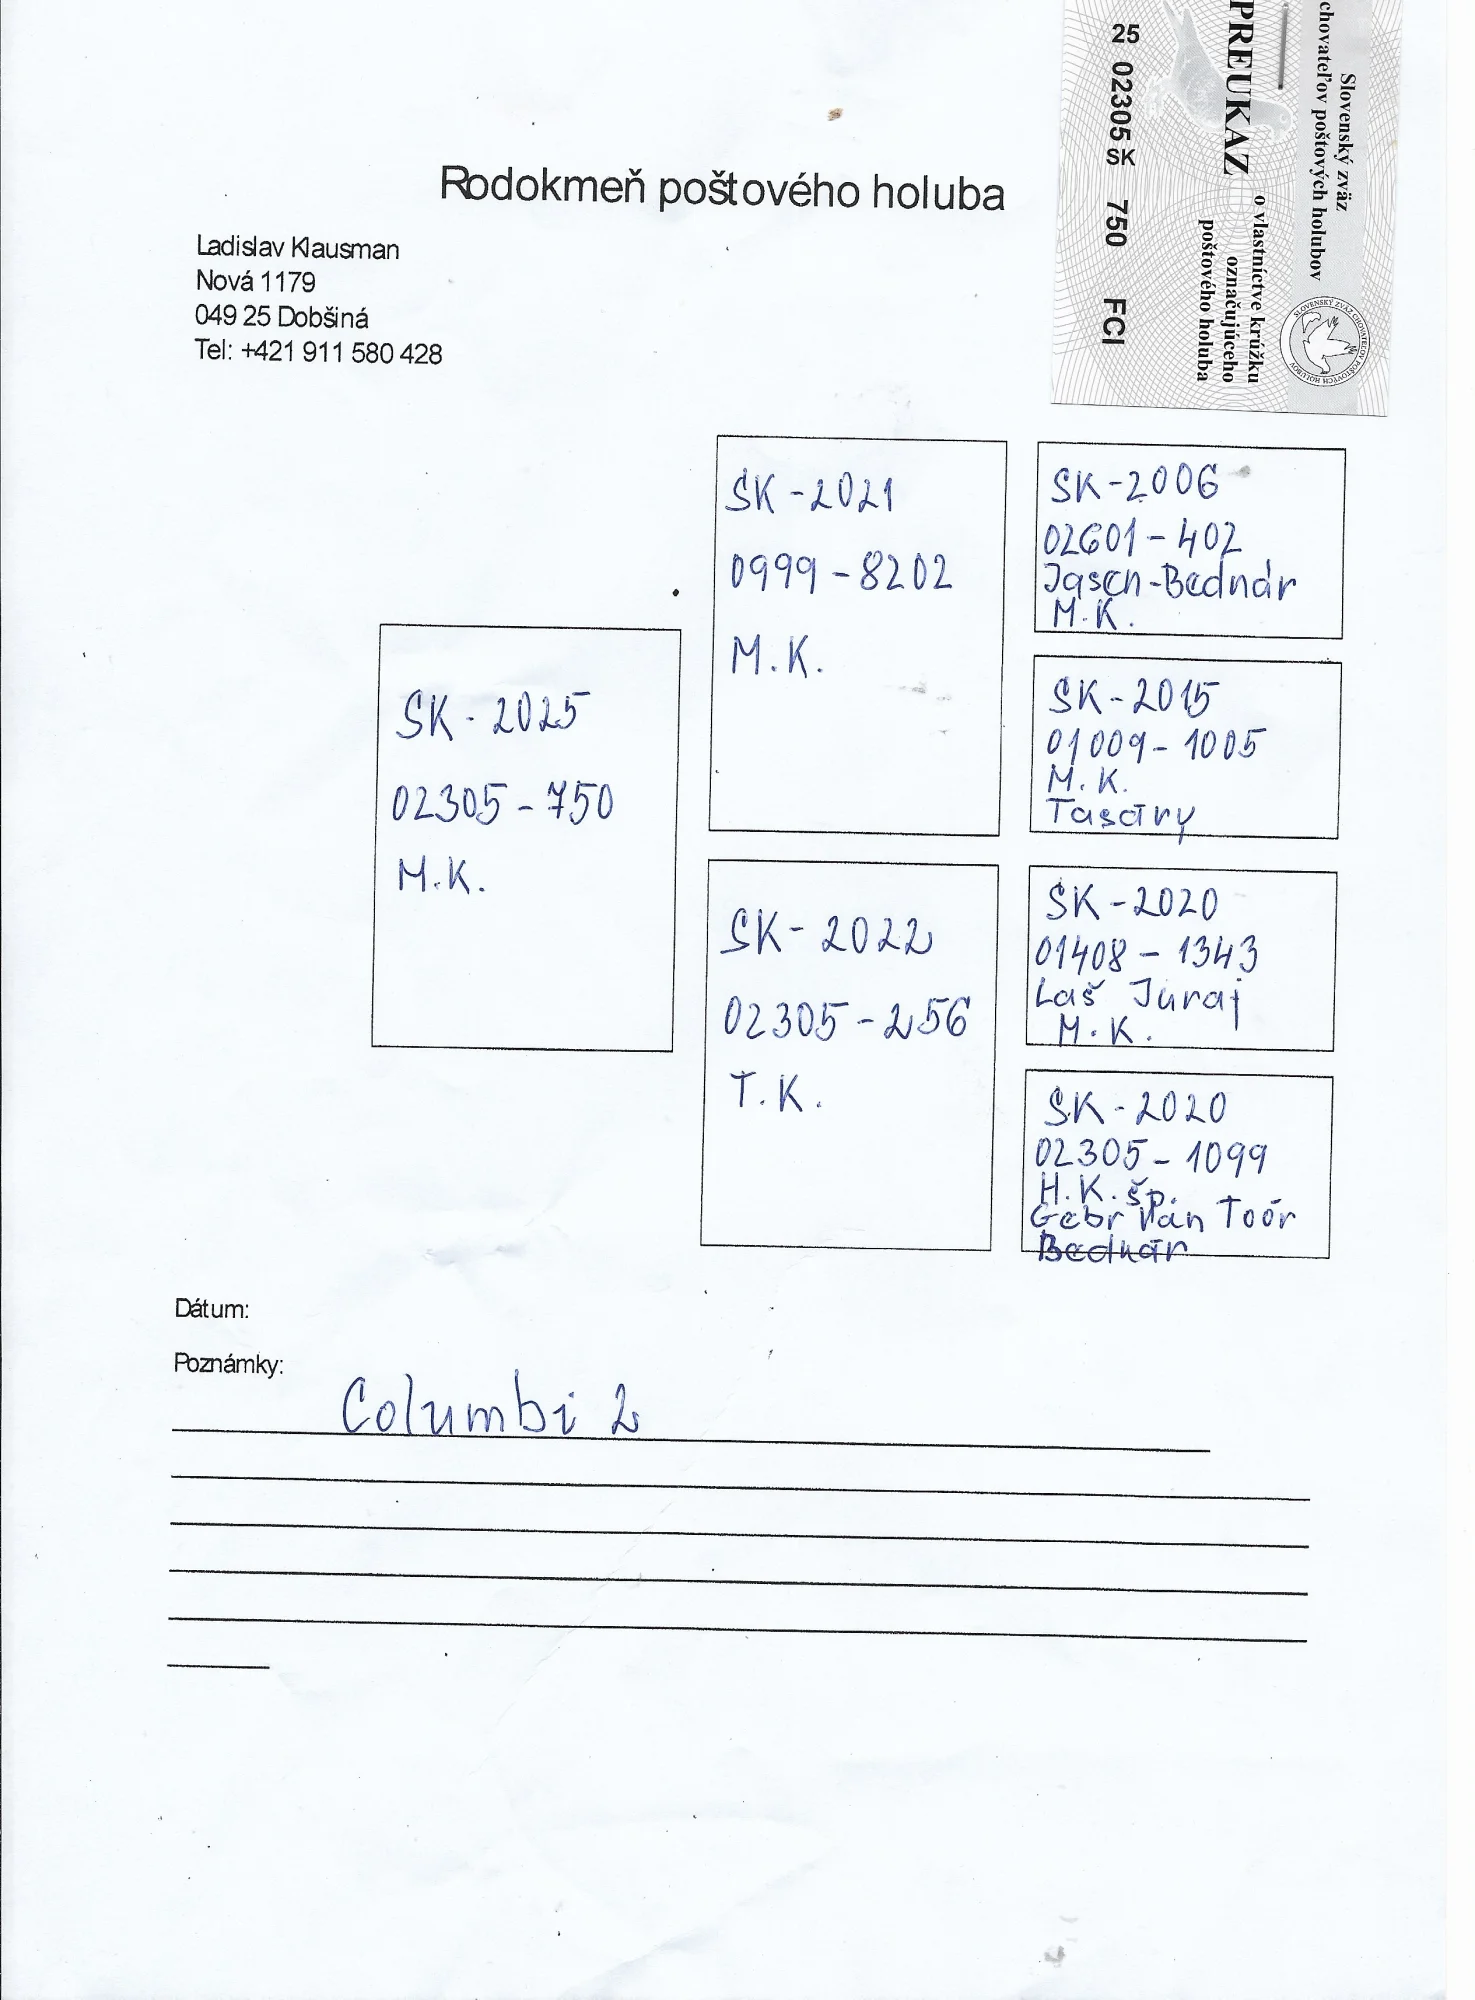 Slovenský zväz
chovateľov poštových holubov
PREUKAZ
o vlastníctve krúžku
označujúceho
poštového holuba
25 02305 SK 750 FCI
SLOVENSKÝ ZVÄZ CHOVATEĽOV POŠTOVÝCH HOLUBOV
Rodokmeň poštového holuba
Ladislav Klausman
Nová 1179
049 25 Dobšiná
Tel: +421 911 580 428
SK - 2025
02305 - 750
M.K.
SK - 2021
0999 - 8202
M.K.
SK - 2022
02305 - 256
T.K.
SK - 2006
02601 - 402
Jasen - Bednár
M.K.
SK - 2015
01009 - 1005
M.K.
Tasáry
SK - 2020
01408 - 1343
Laš Juraj
M.K.
SK - 2020
02305 - 1099
H.K. šp.
Gebr Van Toór
Bednár
Dátum:
Poznámky:
Columbi 2